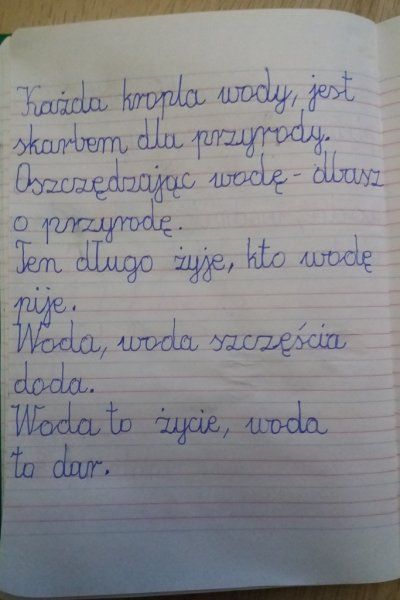 Każda kropla wody, jest
skarbem dla przyrody.
Oszczędzając wodę - dbasz
o przyrodę.
Ten długo żyje, kto wodę
pije.
Woda, woda szczęścia
doda.
Woda to życie, woda
to dar.